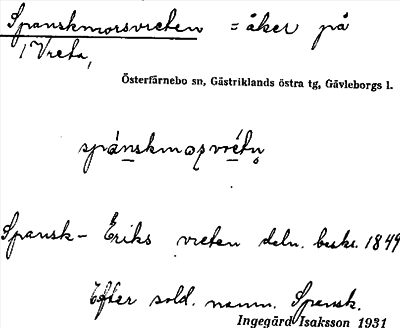 Spanskmorsvreten = åker på
1 Vreta,
Österfärnebo sn, Gästriklands östra tg, Gävleborgs l.
spánskmoʂvrétn̥
Spansk-Eriks vreten deln. beskr. 1849
Efter sold. namn. Spansk.
Ingegärd Isaksson 1931